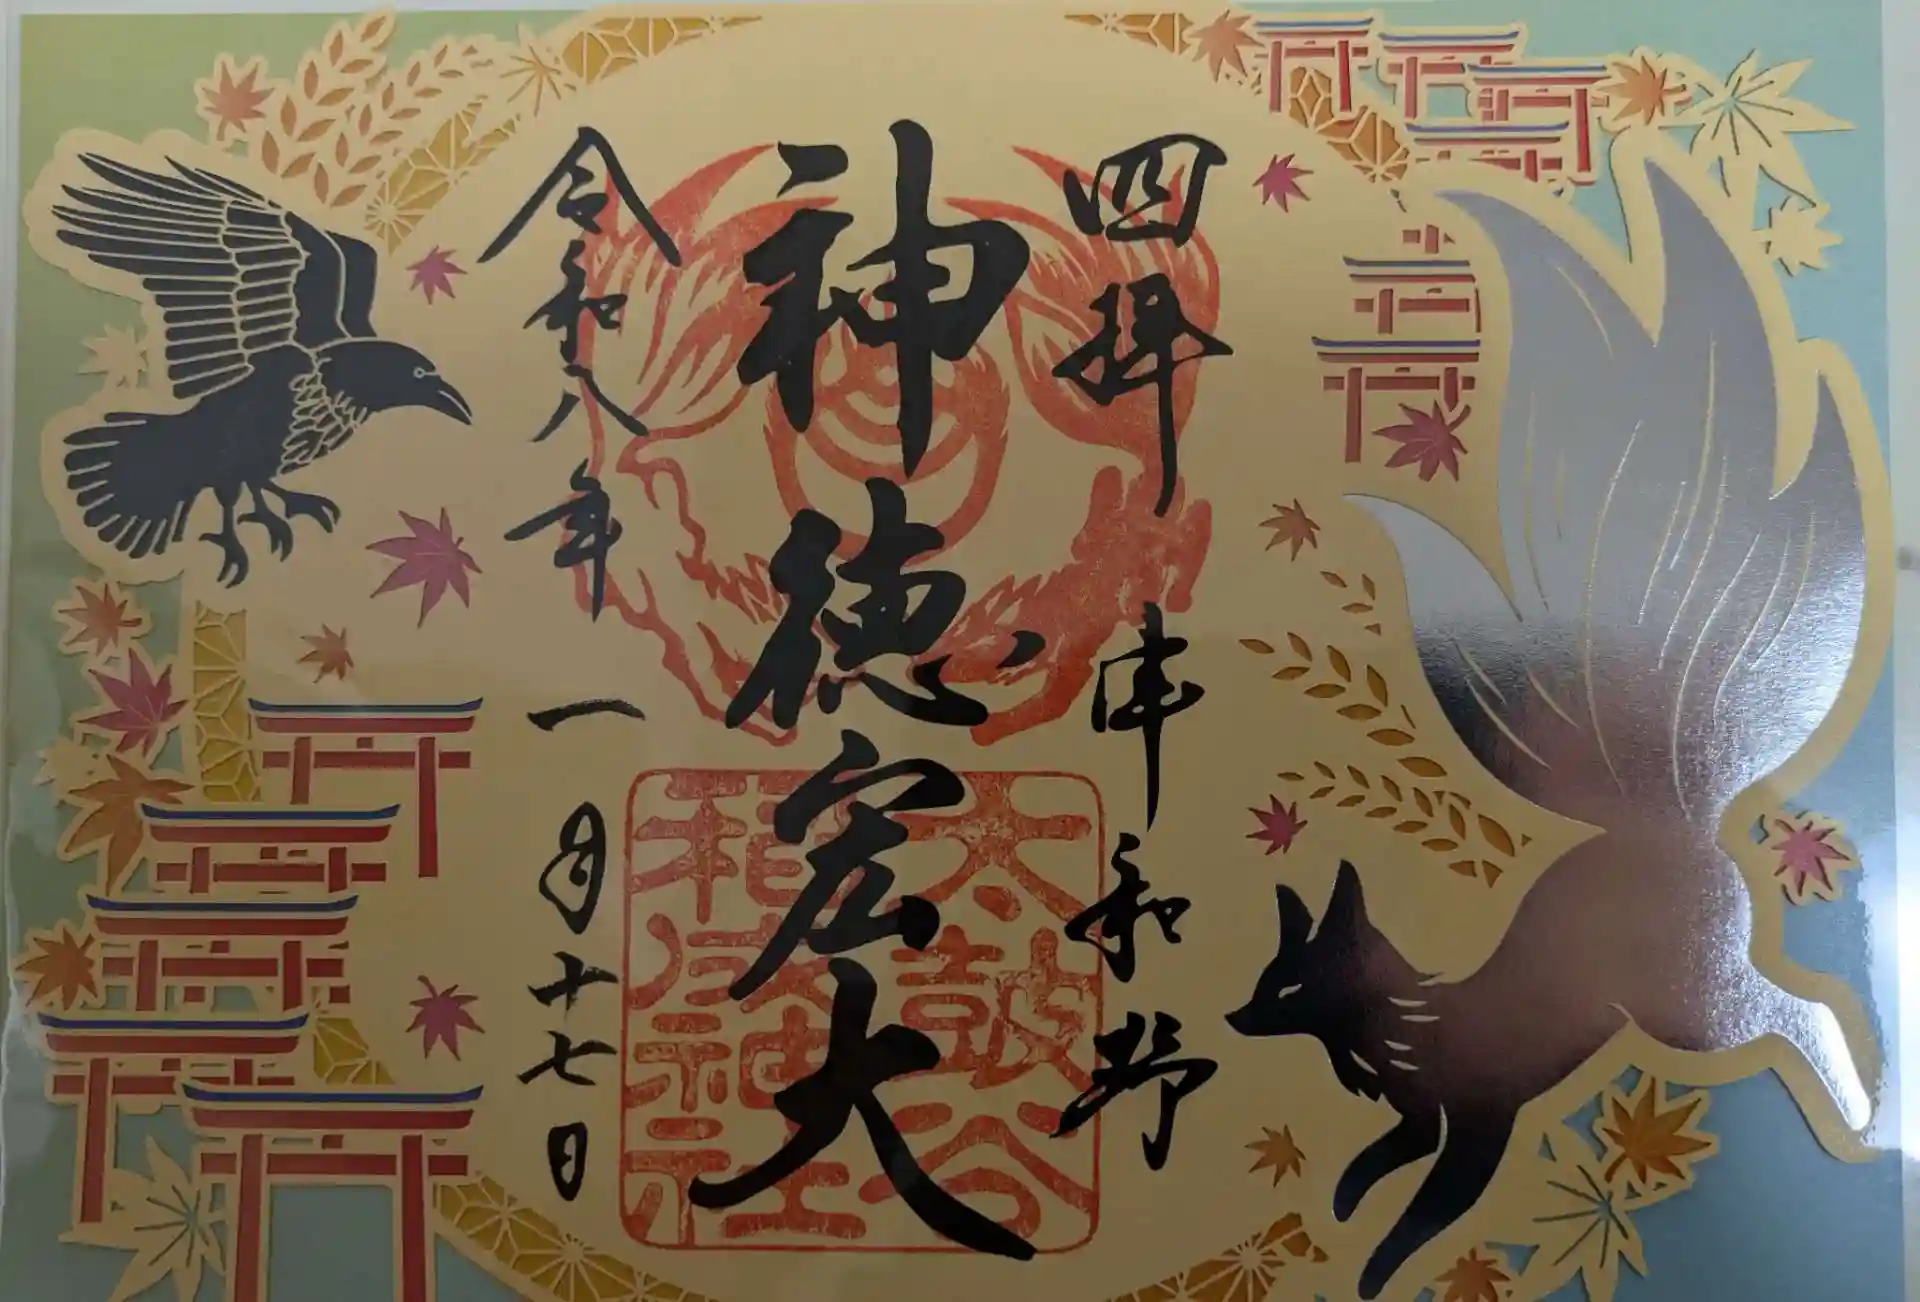 四拝 津和野
神徳宏大
令和八年 一月十七日
太皷谷
稲成神社